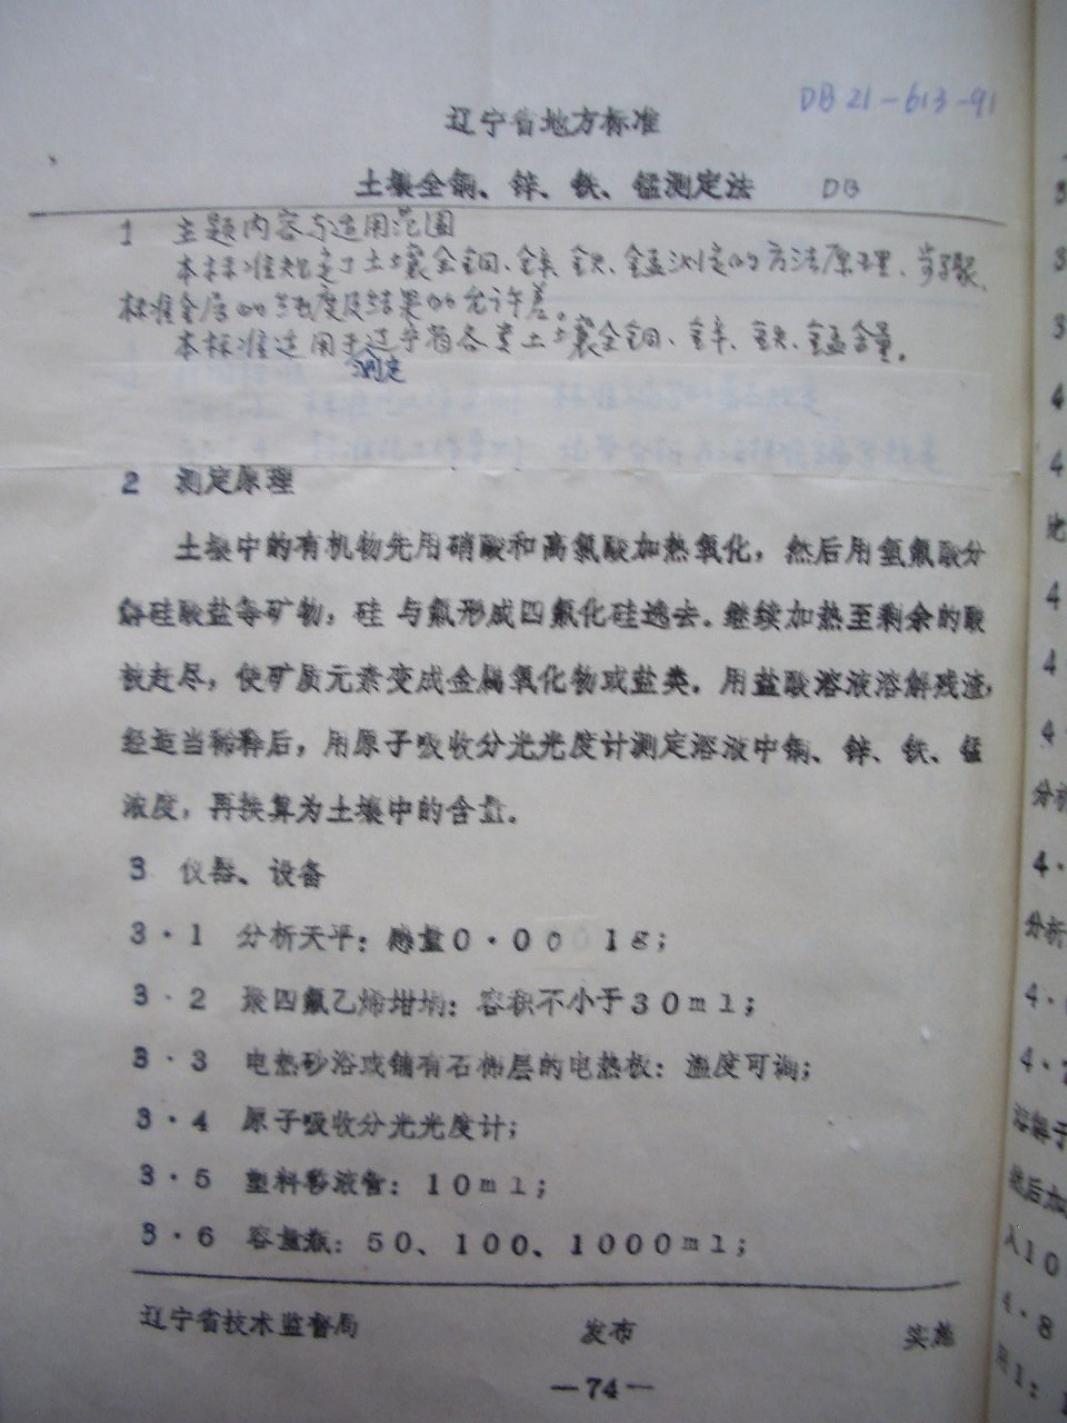 DB 21-613-91
辽宁省地方标准
土壤全铜、锌、铁、锰测定法 DB
1 主题内容与适用范围
本标准规定了土壤全铜、锌、铁、锰测定的方法原理、步骤、
标准金属的纯度及结果的允许差。
本标准适用于辽宁省各类土壤全铜、锌、铁、锰含量。
测定
2 测定原理
土壤中的有机物先用硝酸和高氯酸加热氧化，然后用氢氟酸分
解硅酸盐等矿物，硅 与氟形成四氟化硅逸去。继续加热至剩余的酸
被赶尽，使矿质元素变成金属氧化物或盐类。用盐酸溶液溶解残渣，
经适当稀释后，用原子吸收分光光度计测定溶液中铜、锌、铁、锰
浓度，再换算为土壤中的含量。
3 仪器、设备
3·1 分析天平：感量0·0001g；
3·2 聚四氟乙烯坩埚：容积不小于30ml；
3·3 电热砂浴或铺有石棉层的电热板：温度可调；
3·4 原子吸收分光光度计；
3·5 塑料移液管：10ml；
3·6 容量瓶：50、100、1000ml；
辽宁省技术监督局 发布 实施
—74—